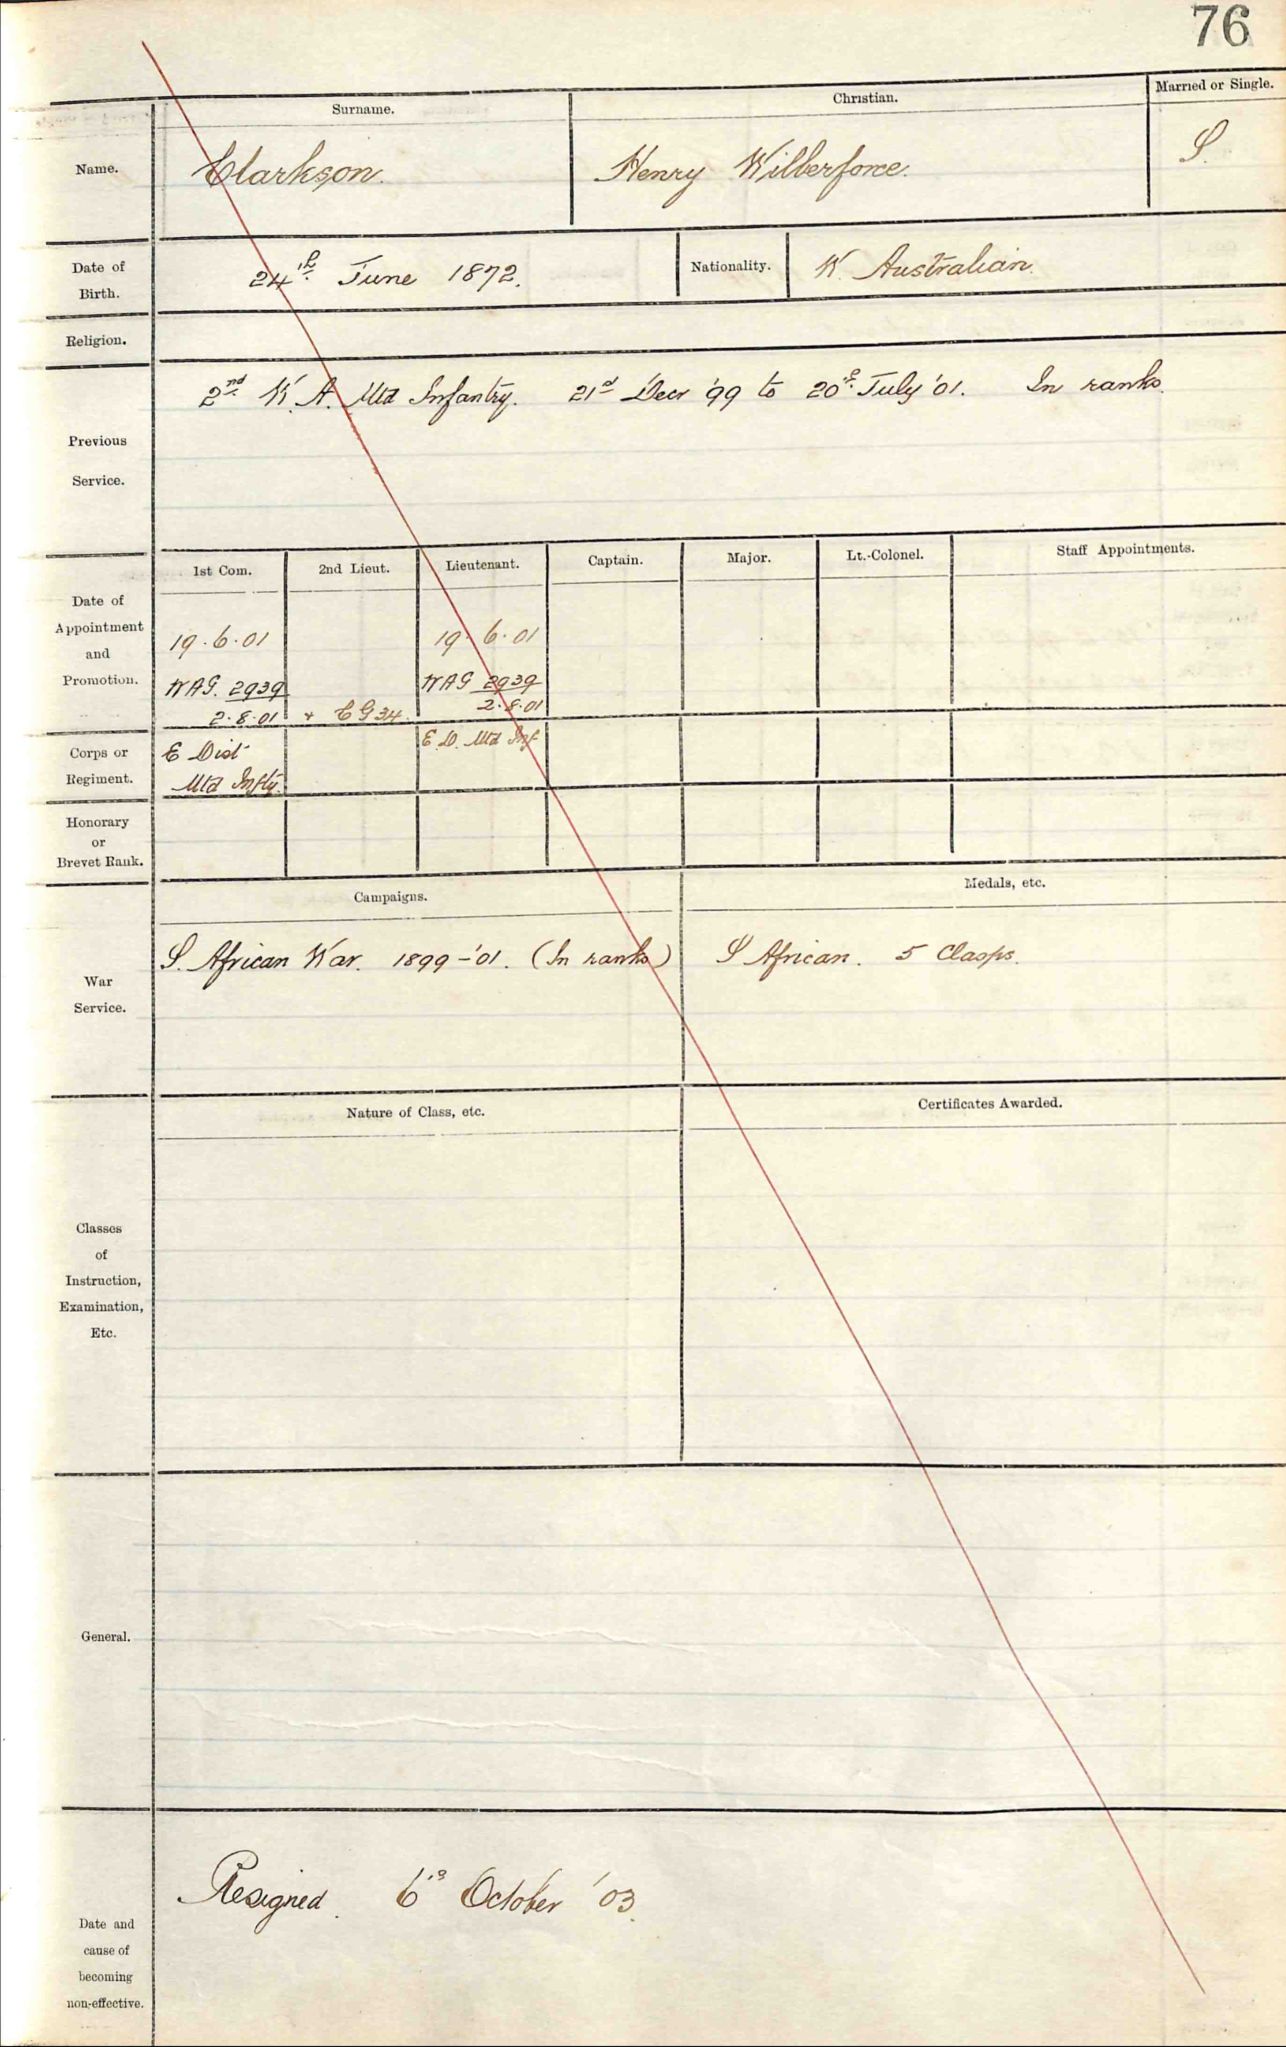 76
Surname. Christian. Married or Single.
Name. Clarkson. Henry Wilberforce. S.
Date of Birth. 24th June 1872. Nationality. W. Australian.
Religion.
Previous Service. 2nd W. A. Mtd Infantry. 21st Decr '99 to 20th July '01. In ranks.
1st Com. 2nd Lieut. Lieutenant. Captain. Major. Lt.-Colonel. Staff Appointments.
Date of Appointment and Promotion.
19.6.01 19.6.01
WAG. 2939 WAG 2939
2.8.01 + CG 34. 2.8.01
Corps or Regiment. E Dist Mtd Infty. E. D. Mtd Inf
Honorary or Brevet Rank.
Campaigns. Medals, etc.
War Service. S. African War. 1899-'01. (In ranks) S African. 5 Clasps.
Nature of Class, etc. Certificates Awarded.
Classes of Instruction, Examination, Etc.
General.
Date and cause of becoming non-effective. Resigned. 6th October '03.